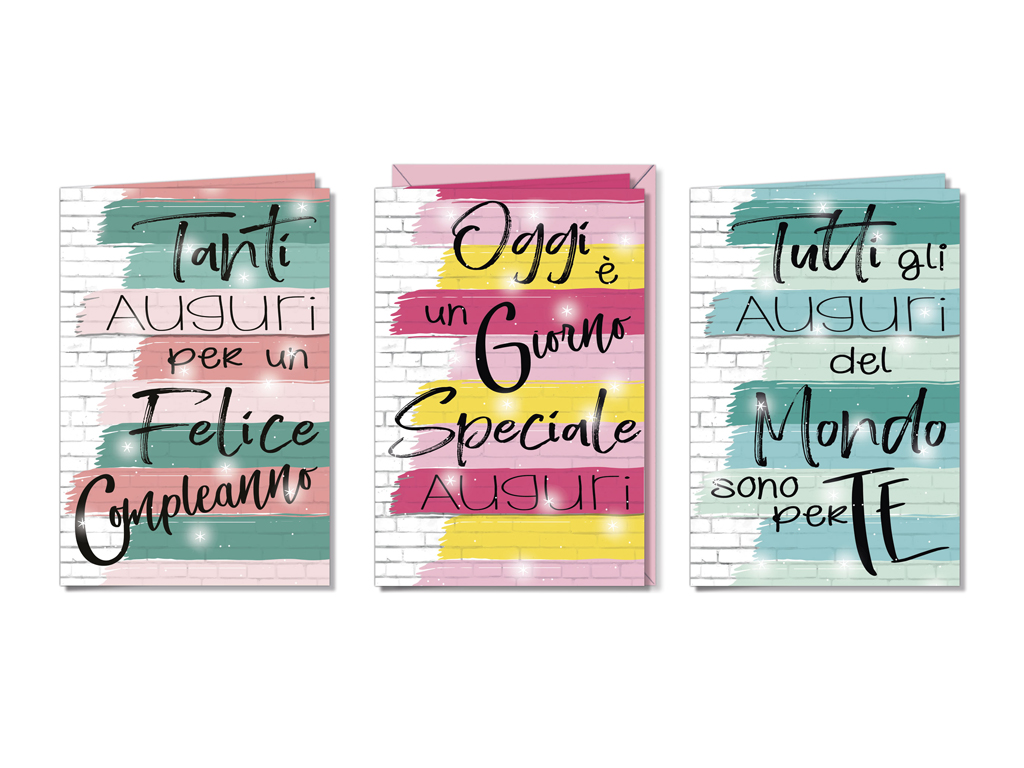 Tanti
AUGURI
PER un
Felice
Compleanno
Oggi è
un Giorno
Speciale
AUGURI
Tutti gli
AUGURI
del
Mondo
sono
per TE